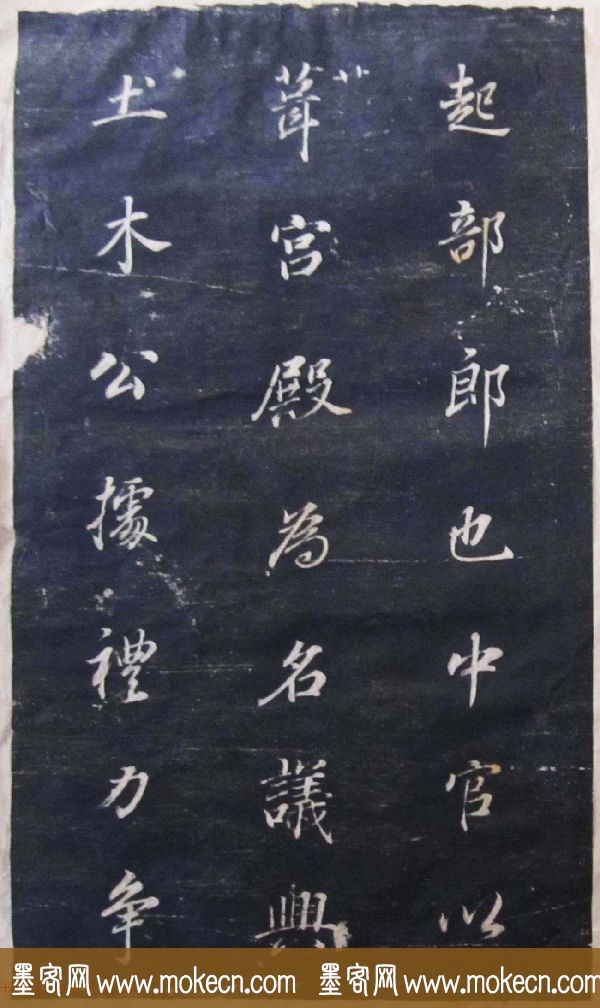 起部郎也中官以
葺宮殿為名議興
土木公據禮力爭
墨客网 www.mokecn.com 墨客网 www.mokecn.com